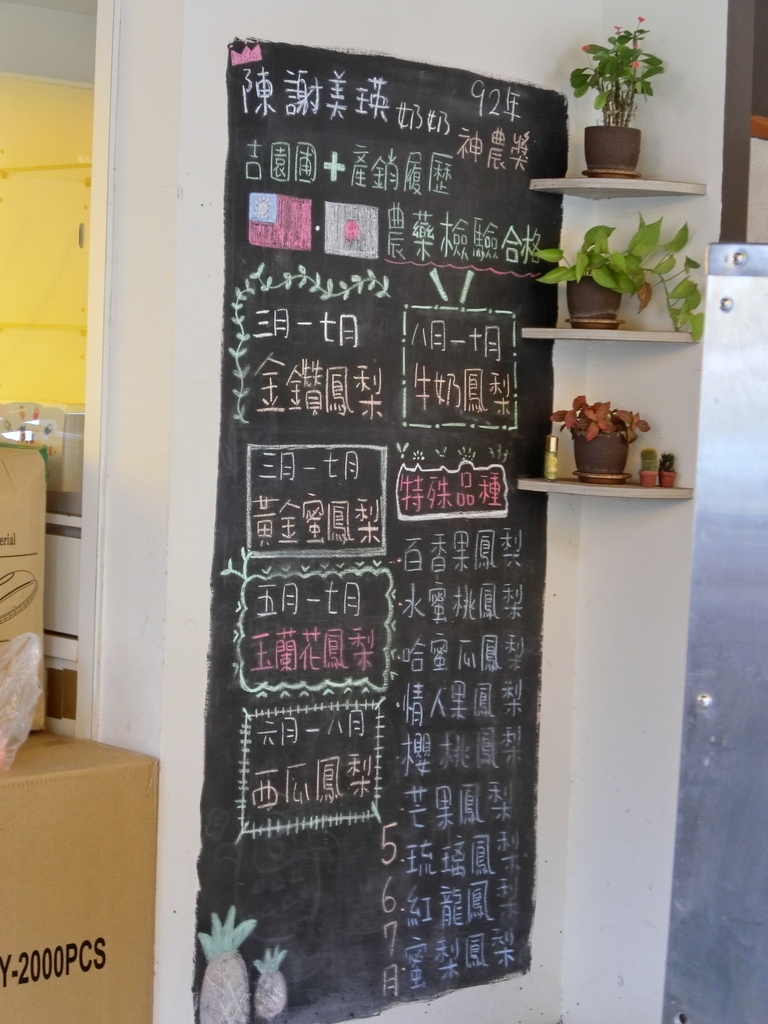 陳謝美瑛奶奶 92年
神農獎
吉園圃+產銷履歷
農藥檢驗合格
三月-七月
金鑽鳳梨
八月-十月
牛奶鳳梨
三月-七月
黃金蜜鳳梨
五月-七月
玉蘭花鳳梨
六月-八月
西瓜鳳梨
特殊品種
百香果鳳梨
水蜜桃鳳梨
哈蜜瓜鳳梨
情人果鳳梨
櫻桃鳳梨
芒果鳳梨
琉璃鳳梨
紅龍鳳梨
蜜梨鳳梨
5.6.7月
erial
Y-2000PCS